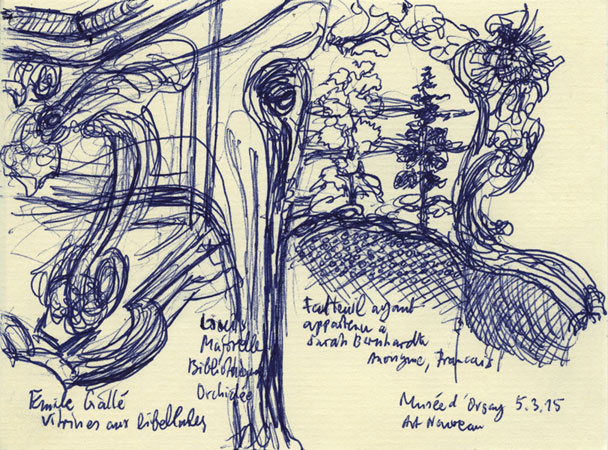 Emile Gallé
Vitrines aux Libellules
Louis
Majorelle
Bibliothèque
Orchidée
Fauteuil ayant
appartenu a
Sarah Bernhardt
Anonyme, Francais
Musée d'Orsay 5.3.15
Art Nouveau